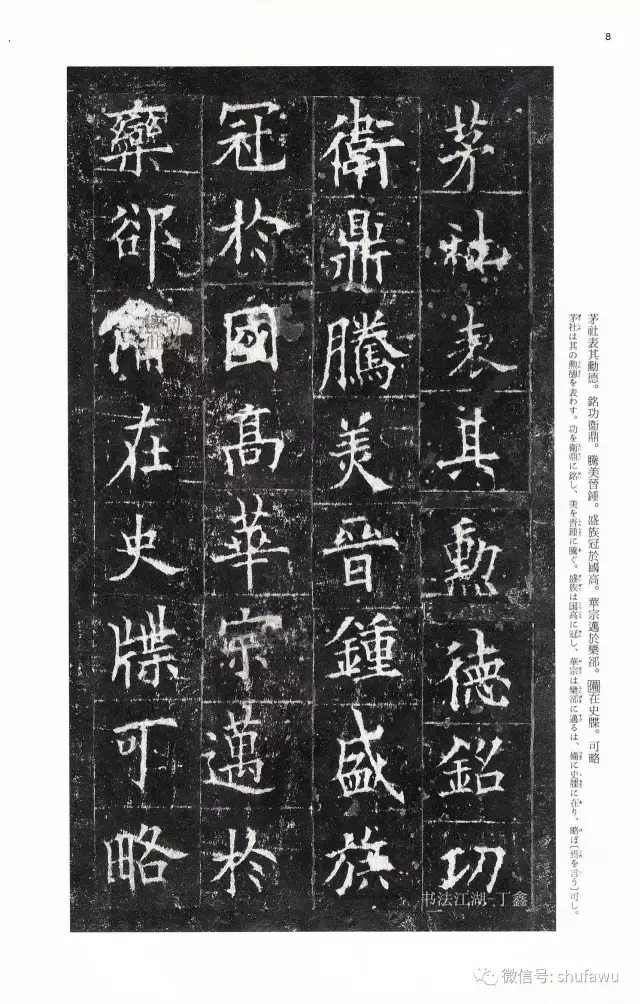 8
茅社表其勳德銘功
衛鼎騰美晉鍾盛族
冠於國高華宗邁於
欒郤備在史牒可略
茅社表其勳德。銘功衞鼎。騰美晉鍾。盛族冠於國高。華宗邁於欒郤。備在史牒。可略
茅社は其の勳德を表わす。功を衞鼎に銘し、美を晉鍾に騰ぐ。盛族は国高に冠し、華宗は欒郤に邁るは、備に史牒に在り、略ぼ〔焉を言う〕可し。
书法江湖-丁鑫
微信号: shufawu